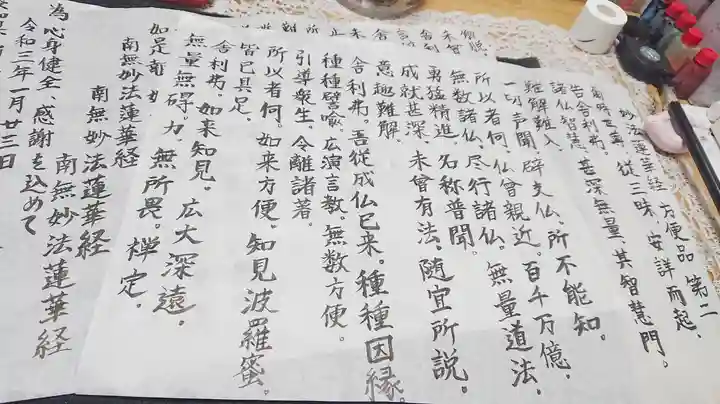 妙法蓮華経 方便品 第二
爾時世尊。従三昧。安詳而起。
告舎利弗。
諸仏智慧。甚深無量。其智慧門。
難解難入。
一切声聞。辟支仏。所不能知。
所以者何。仏曾親近。百千万億。
無数諸仏。尽行諸仏。無量道法。
勇猛精進。名称普聞。
成就甚深。未曾有法。随宜所説。
意趣難解。
舎利弗。吾従成仏已来。種種因縁。
種種譬喩。広演言教。無数方便。
引導衆生。令離諸著。
所以者何。如来方便。知見波羅蜜。
皆已具足。
舎利弗。如来知見。広大深遠。
無量無碍。力。無所畏。禅定。
如是
南無妙法蓮華経
南無妙法蓮華経
南無妙法蓮華経
為 心身健全 感謝を込めて
令和三年一月廿三日